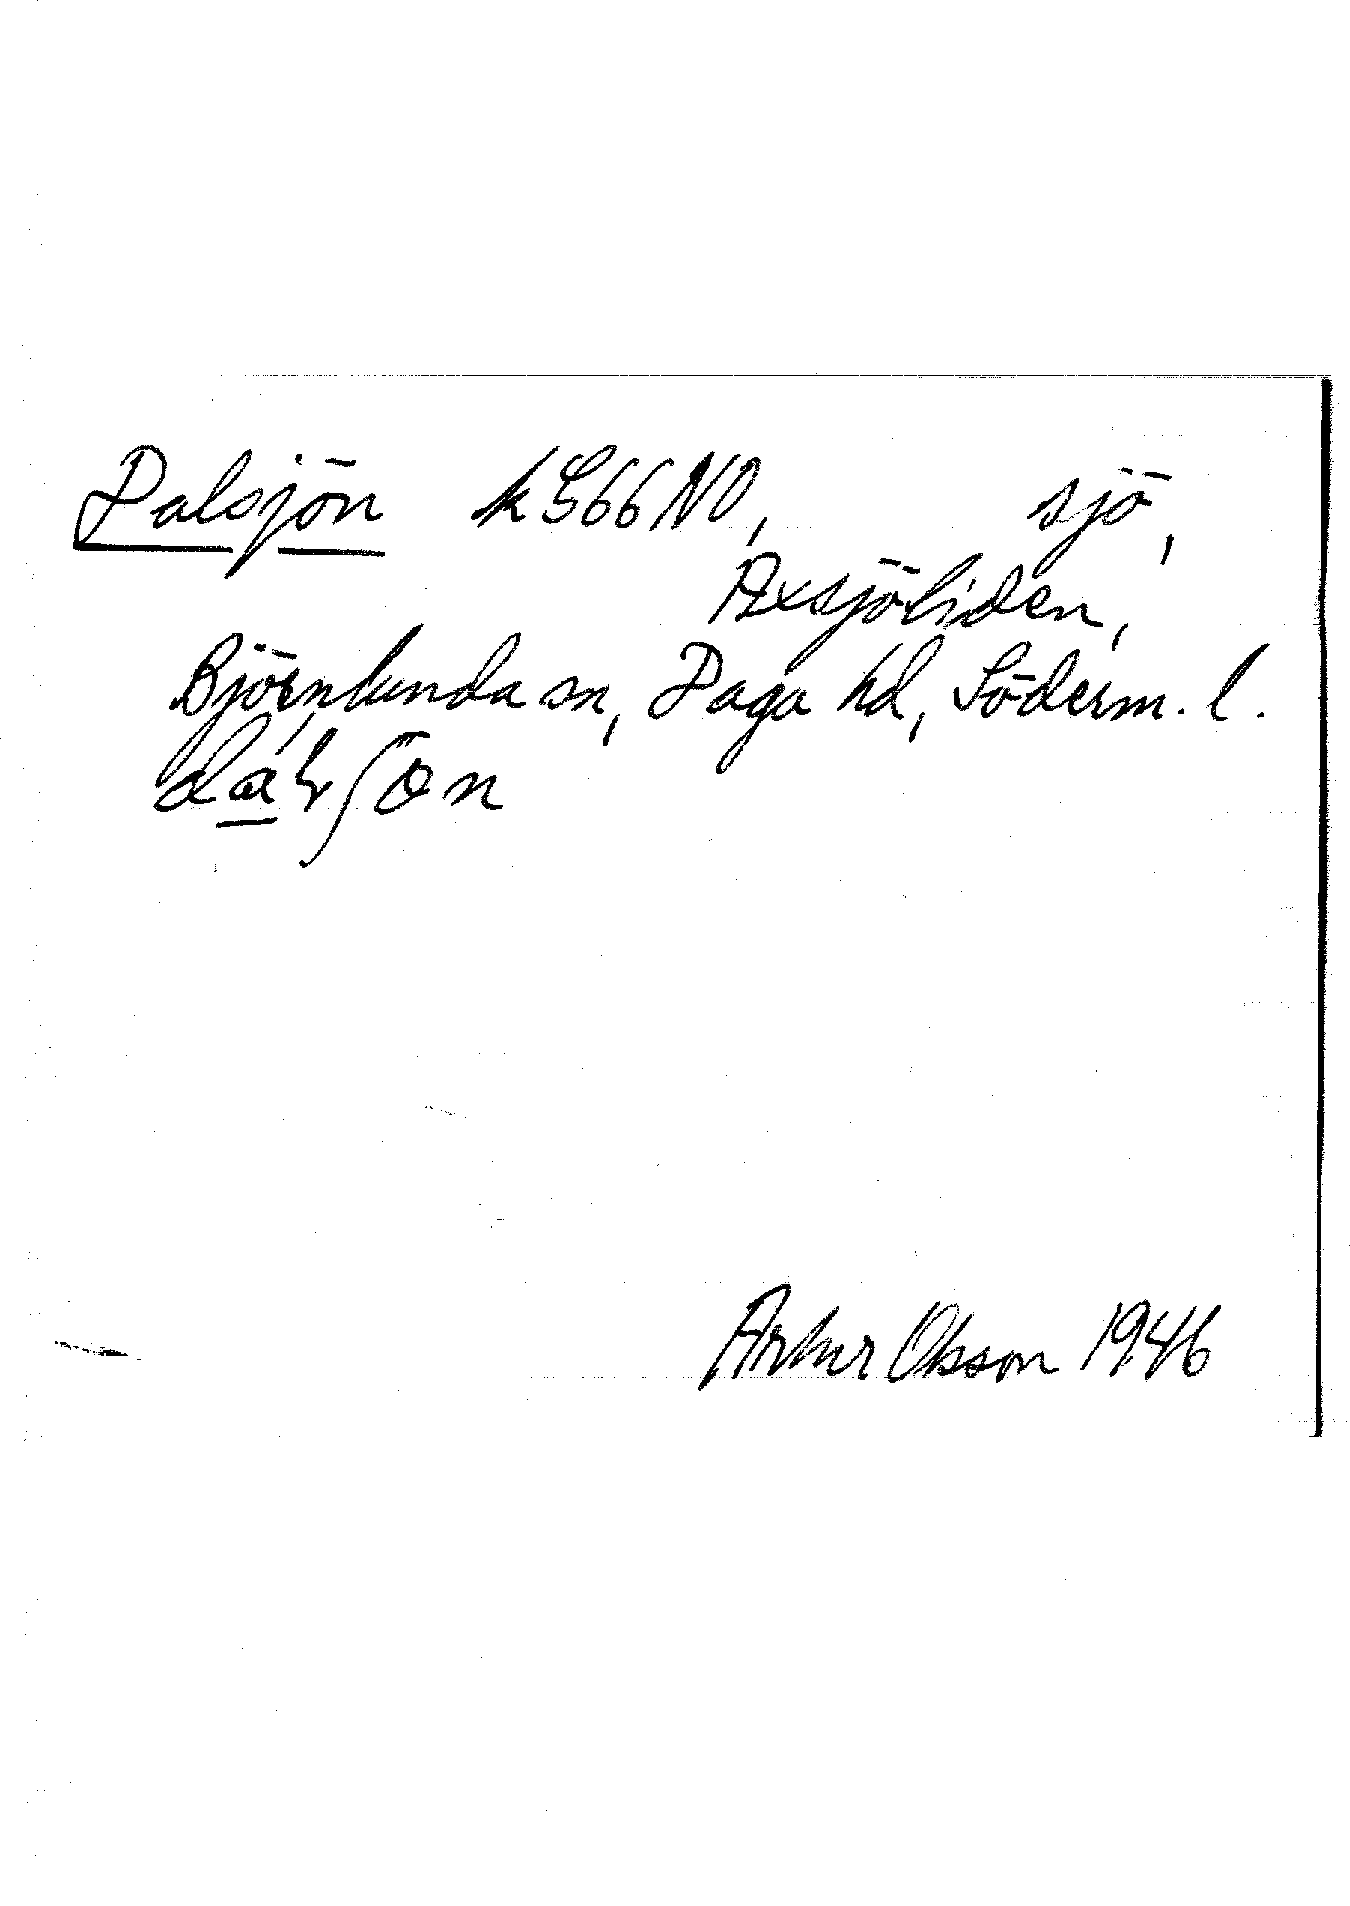 Dalsjön k S66NO, sjö,
Axsjöliden,
Björnlunda sn, Daga hd, Söderm. l.
Artur Olsson 1946